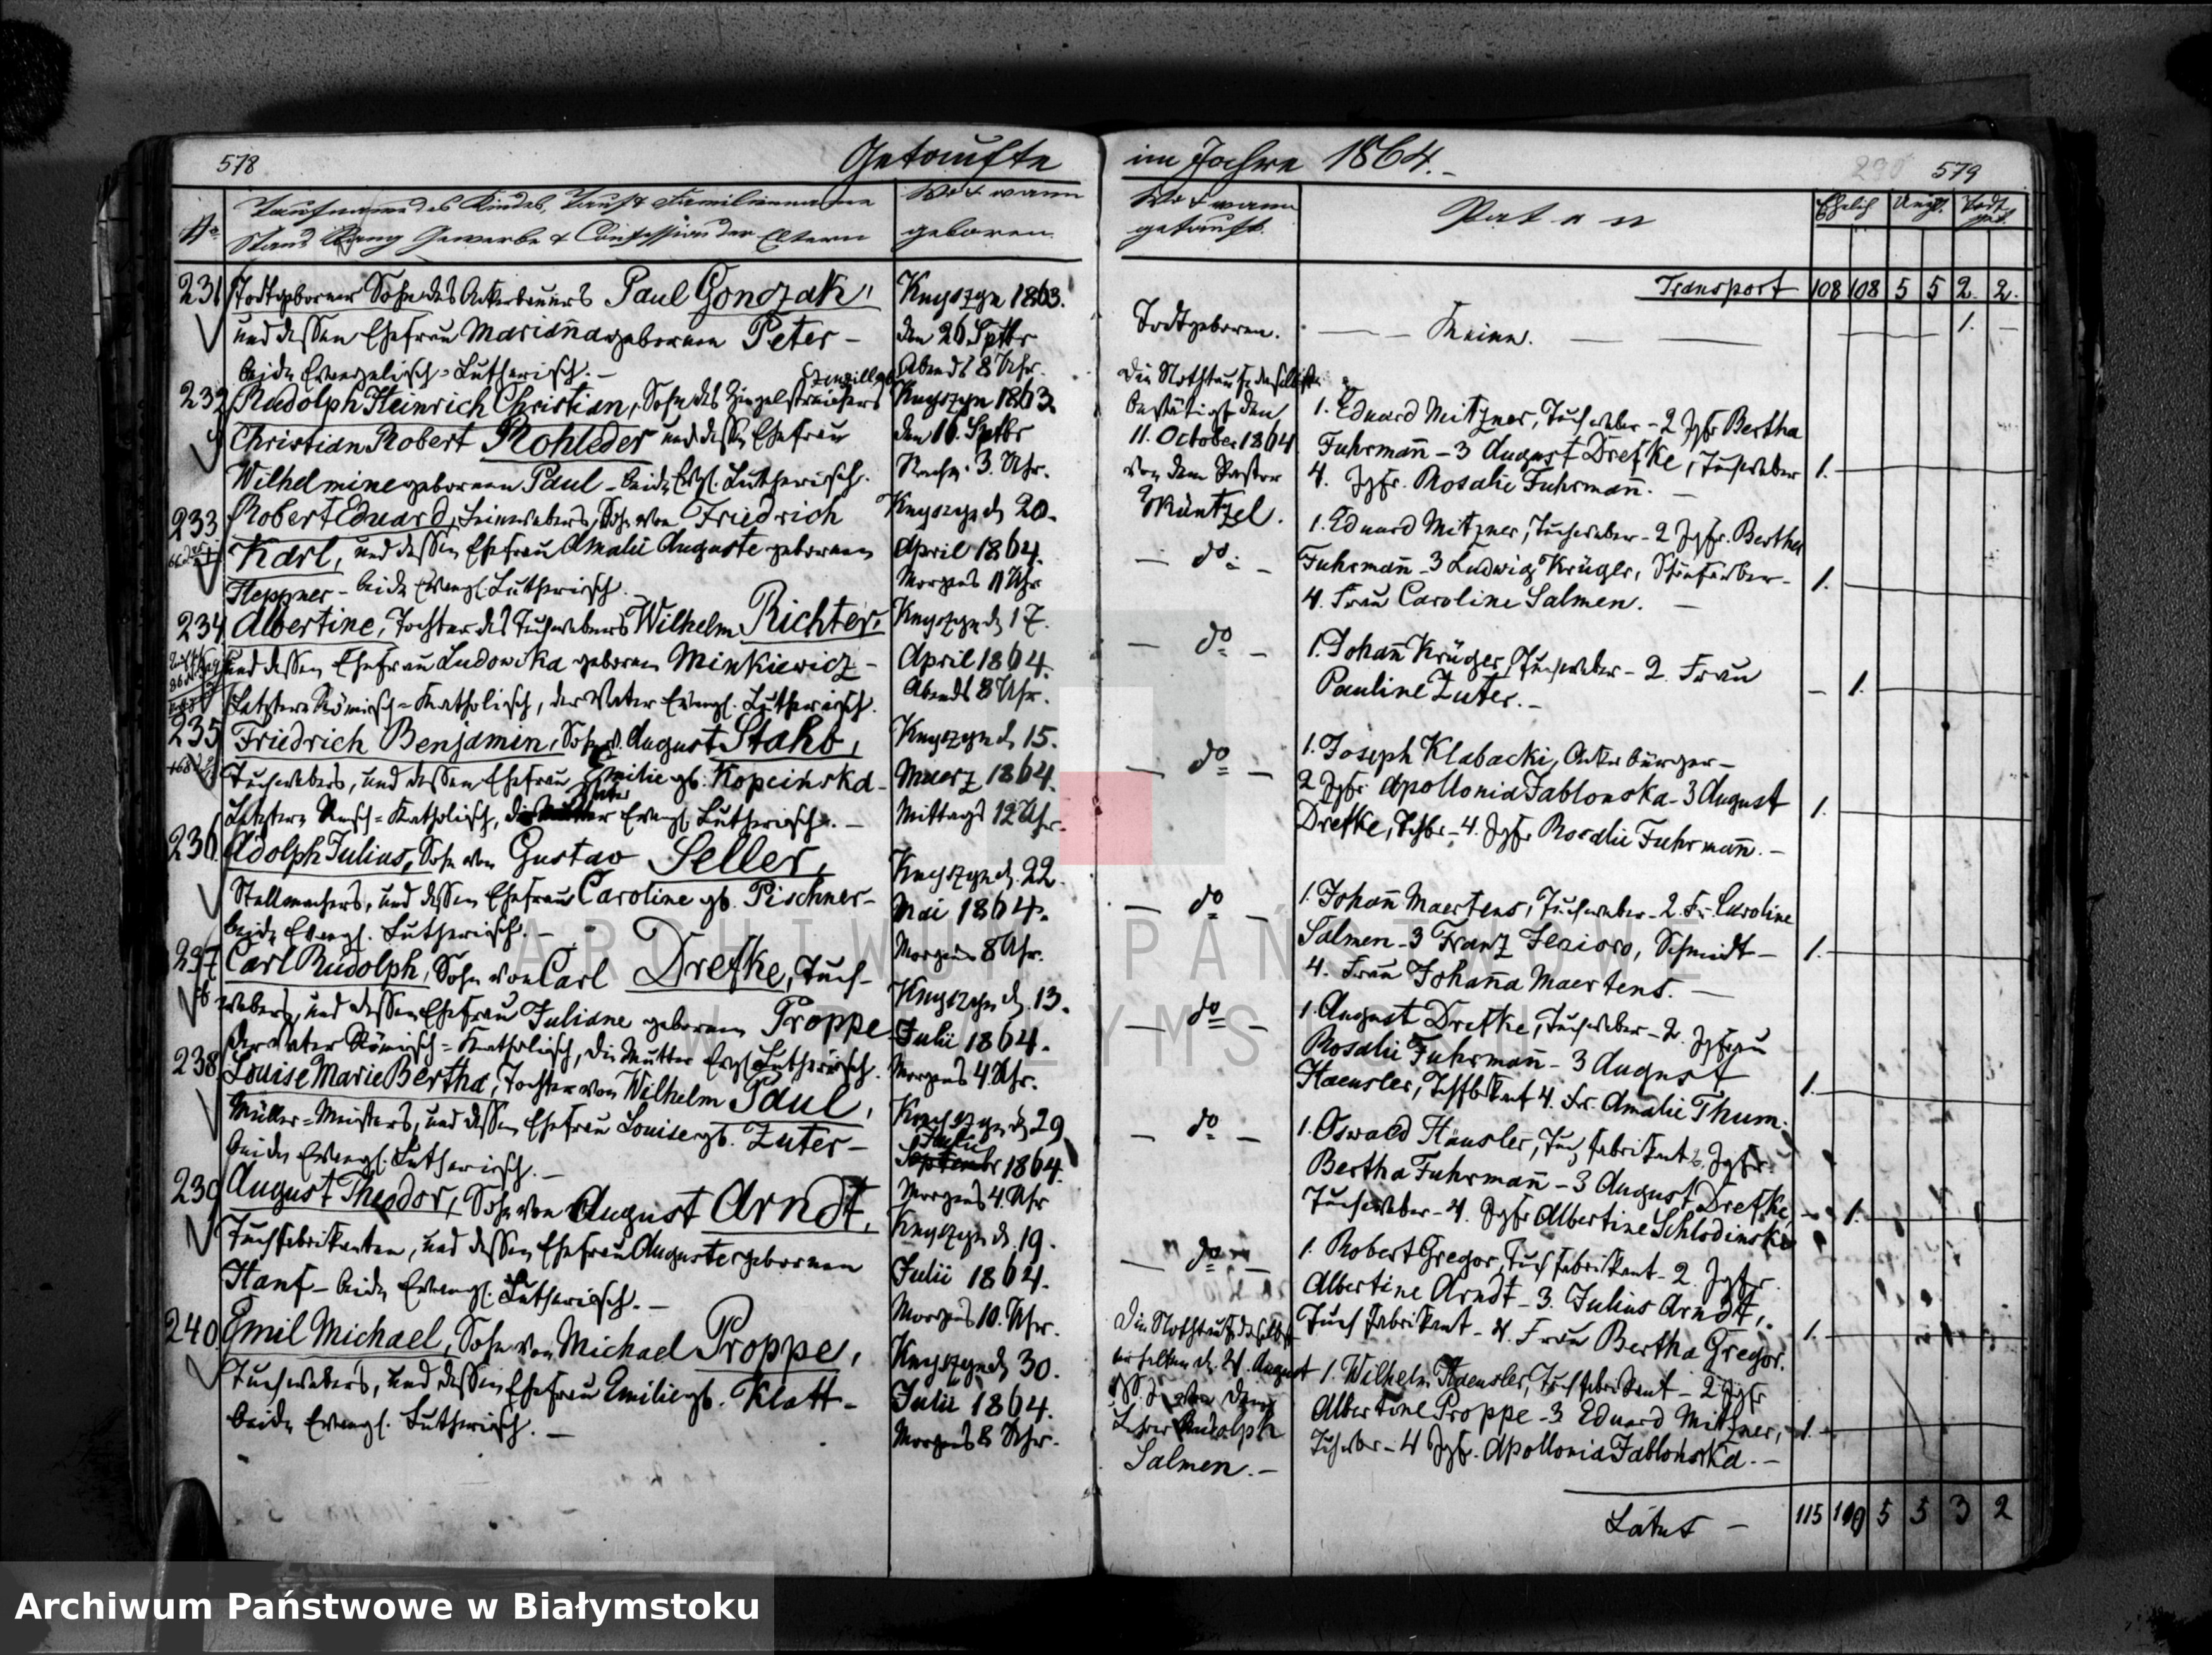 578
Getaufte
No
Taufname des Kindes, Tauf & Familienname
Stand Rang Gewerbe & Confession der Eltern
Wo & wann
geboren.
231 Todtgeborner Sohn des Ackerbauers Paul Gonczak,
und dessen Ehefrau Mariaña geborenen Peter –
beide Evangelisch-Lutherisch. –
Knyszyn 1863.
den 26. Sptbr
Abends 8 Uhr.
232 Rudolph Heinrich Christian, Sohn des Ziegelstreichers
Christian Robert Rohleder und dessen Ehefrau
Wilhelmine geborenen Paul – beide Evgl. Lutherisch.
Knyszyn 1863
den 16. Sptbr
Nachm. 3. Uhr.
233 Robert Eduard, Leinwebers, Sohn von Friedrich
Karl, und dessen Ehefrau Amalie Auguste geborenen
Heppner – beide Evangl. Lutherisch.
Knyszyn d. 20.
April 1864.
Morgens 11 Uhr
234 Albertine, Tochter des Tuchwebers Wilhelm Richter,
und dessen Ehefrau Ludowika geborenen Minkiewicz –
Letztere Römisch-Katholisch, der Vater Evangl. Lutherisch.
Knyszyn d. 17.
April 1864.
Abends 8 Uhr.
235 Friedrich Benjamin, Sohn v. August Stahb,
Tuchwebers, und dessen Ehefrau Emilie gb. Kopcinska –
Letztere Römsch-Katholisch, der Vater Evangl. Lutherisch. –
Knyszyn d. 15.
Maerz 1864.
Mittags 12 Uhr.
236 Adolph Julius, Sohn von Gustav Seller,
Stellmachers, und dessen Ehefrau Caroline gb. Pischner –
beide Evangl. Lutherisch. –
Knyszyn d. 22.
Mai 1864.
Morgens 8 Uhr.
237 Carl Rudolph, Sohn von Carl Drefke, Tuch-
webers, und dessen Ehefrau Juliane geborenen Proppe
der Vater Römisch-Katholisch, die Mutter Evgl. Lutherisch.
Knyszyn d. 13.
Julii 1864.
Morgens 4 Uhr.
238 Louise Marie Bertha, Tochter von Wilhelm Paul,
Müller-Meisters, und dessen Ehefrau Louise gb. Zuter –
beide Evangl. Lutherisch. –
Knyszyn d. 29
Julii
Septembr 1864.
Morgens 4. Uhr
239 August Theodor, Sohn von August Arndt,
Tuchfabrikanten, und dessen Ehefrau Auguste geborenen
Hanf – beide Evangl. Lutherisch. –
Knyszyn d. 19.
Julii 1864.
Morgens 10. Uhr.
240. Emil Michael, Sohn von Michael Proppe,
Tuchwebers, und dessen Ehefrau Emilie gb. Klatt –
beide Evangl. Lutherisch. –
Knyszyn d. 30.
Julii 1864.
Morgens 8 Uhr.
im Jahre 1864. –
290 579
Wo & wann
getauft.
Paten
Ehelich Unehl. Todt
geb.
Transport 108 108 5 5 2. 2.
Todtgeboren. – – Keine. – – 1. –
Die Nothtaufe daselbst
bestätigt den
11. October 1864
von dem Pastor
Müntzel.
1. Eduard Mitzner, Tuchweber – 2 Jgfr Bertha
Fuhrmañ – 3 August Drefke, Tuchweber
4. Jgfr. Rosalie Fuhrmañ. – 1.
– do –
1. Eduard Mitzner, Tuchweber – 2 Jgfr. Bertha
Fuhrmañ – 3 Ludwig Krüger, Schönfärber –
4. Frau Caroline Salmen. – 1.
– do –
1. Johañ Krüger, Tuchweber – 2. Frau
Pauline Zuter. – – 1.
– do –
1. Joseph Klabacki, Ackerbürger –
2 Jgfr. Apollonia Jablonska – 3 August
Drefke, Tchbr – 4. Jgfr Rosalie Fuhrmañ. – 1.
– do –
1. Johañ Maertens, Tuchweber – 2. Fr. Caroline
Salmen – 3 Franz, Schmidt –
4. Frau Johaña Maertens. – 1.
– do –
1. August Drefke, Tuchweber – 2. Jgfrau
Rosalie Fuhrmañ – 3 August
Haeusler, Tchfbkant 4. Fr. Amalie Thum. 1.
– do –
1. Oswald Häusler, Tuchfabrikant 2. Jgfr
Bertha Fuhrmañ – 3 August Drefke,
Tuchweber – 4. Jgfr Albertine Schlodinska – 1.
– do –
1. Robert Gregor, Tuchfabrikant – 2. Jgfr.
Albertine Arndt – 3. Julius Arndt,
Tuchfabrikant – 4. Frau Bertha Gregor. 1.
Die Nothtaufe daselbst
erhalten d. 21. August
von dem
Lehrer Rudolph
Salmen. –
1. Wilhelm Haeusler, Tuchfabrikant – 2 Jgfr
Albertine Proppe – 3 Eduard Mitzner,
Tchwbr – 4 Jgfr. Apollonia Jablonska. – 1.
Latus – 115 110 5 5 3 2
ARCHIWUM PAŃSTWOWE
W BIAŁYMSTOKU
Archiwum Państwowe w Białymstoku